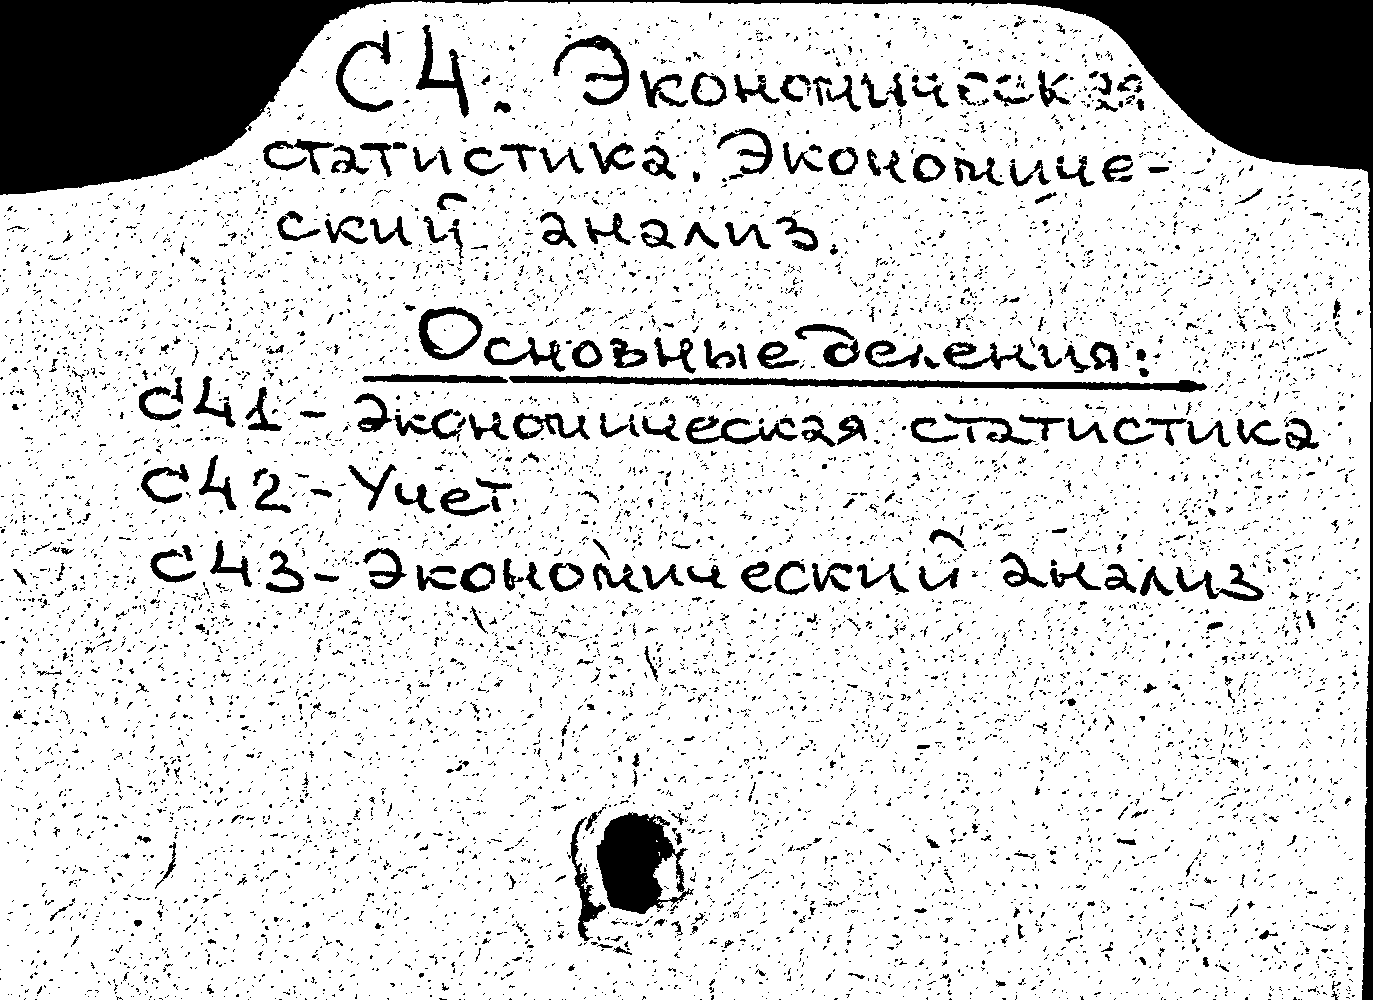 С4. Экономическая
статистика. Экономиче-
ский анализ.
Основные деления:
С41 - Экономическая статистика
С42 - Учет
С43 - Экономический анализ